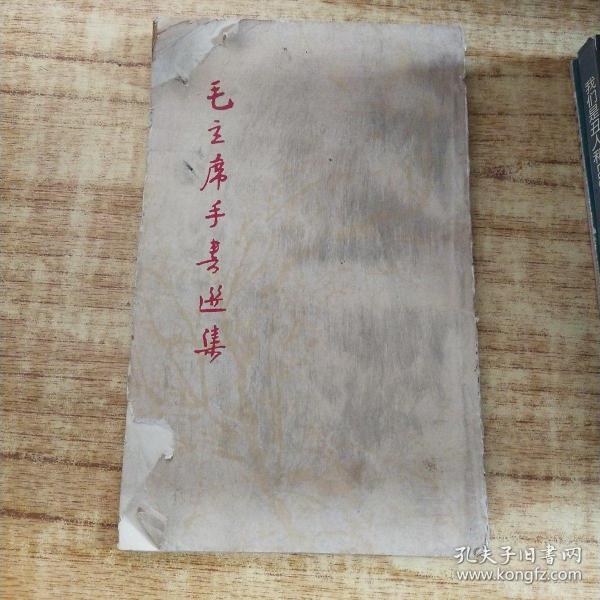 毛主席手書選集
我们是丑人和
孔夫子旧書网
www.kongfz.com